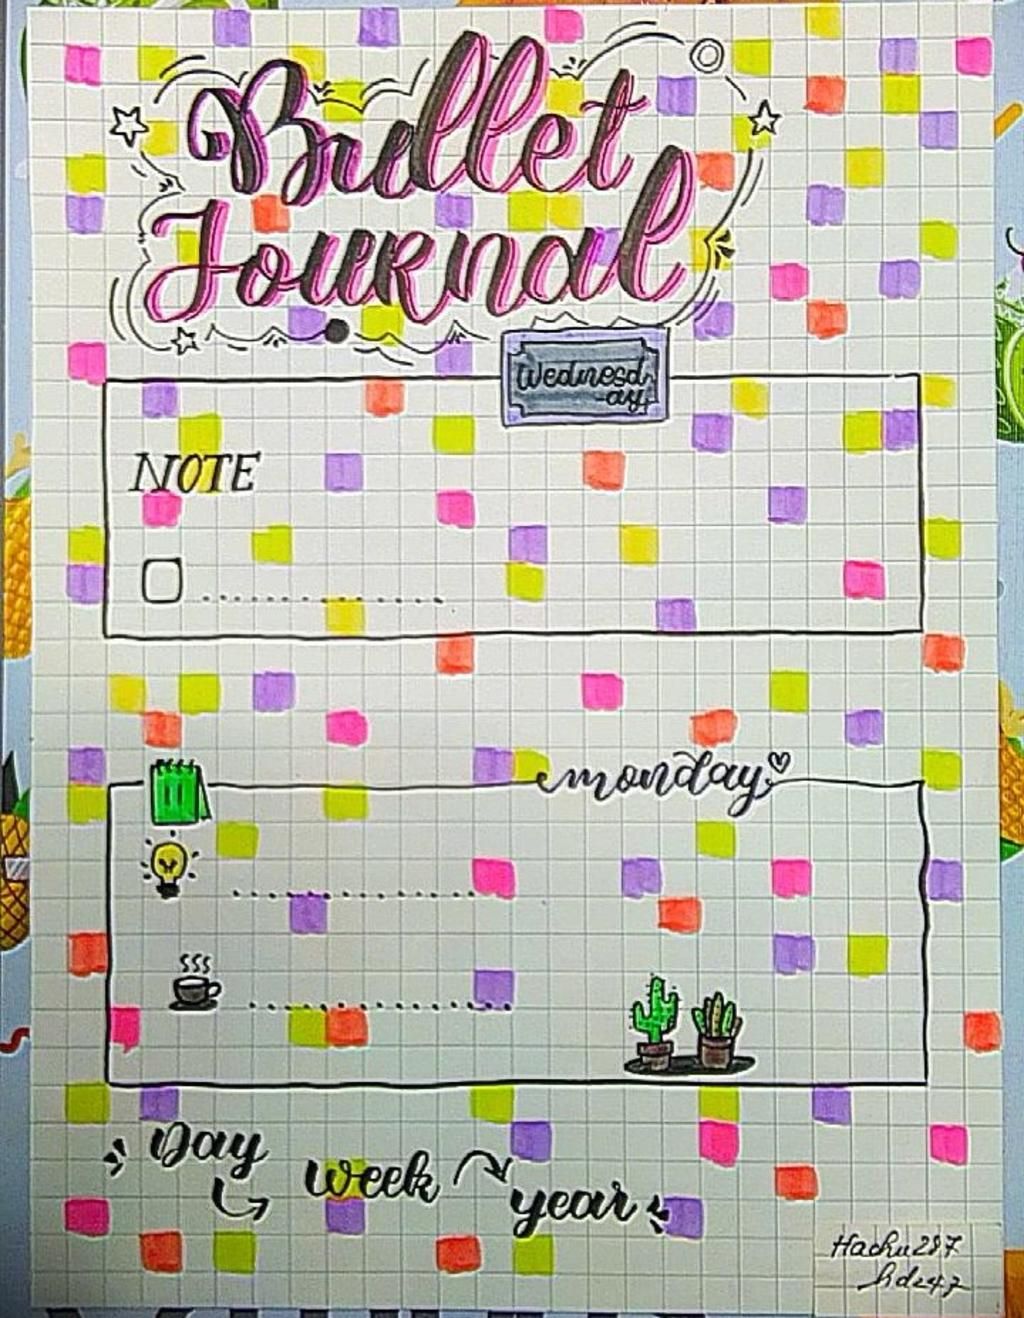 Bullet
Journal
Wednesd
ay
NOTE
monday
Day
week
year
Hachu287
hdz47